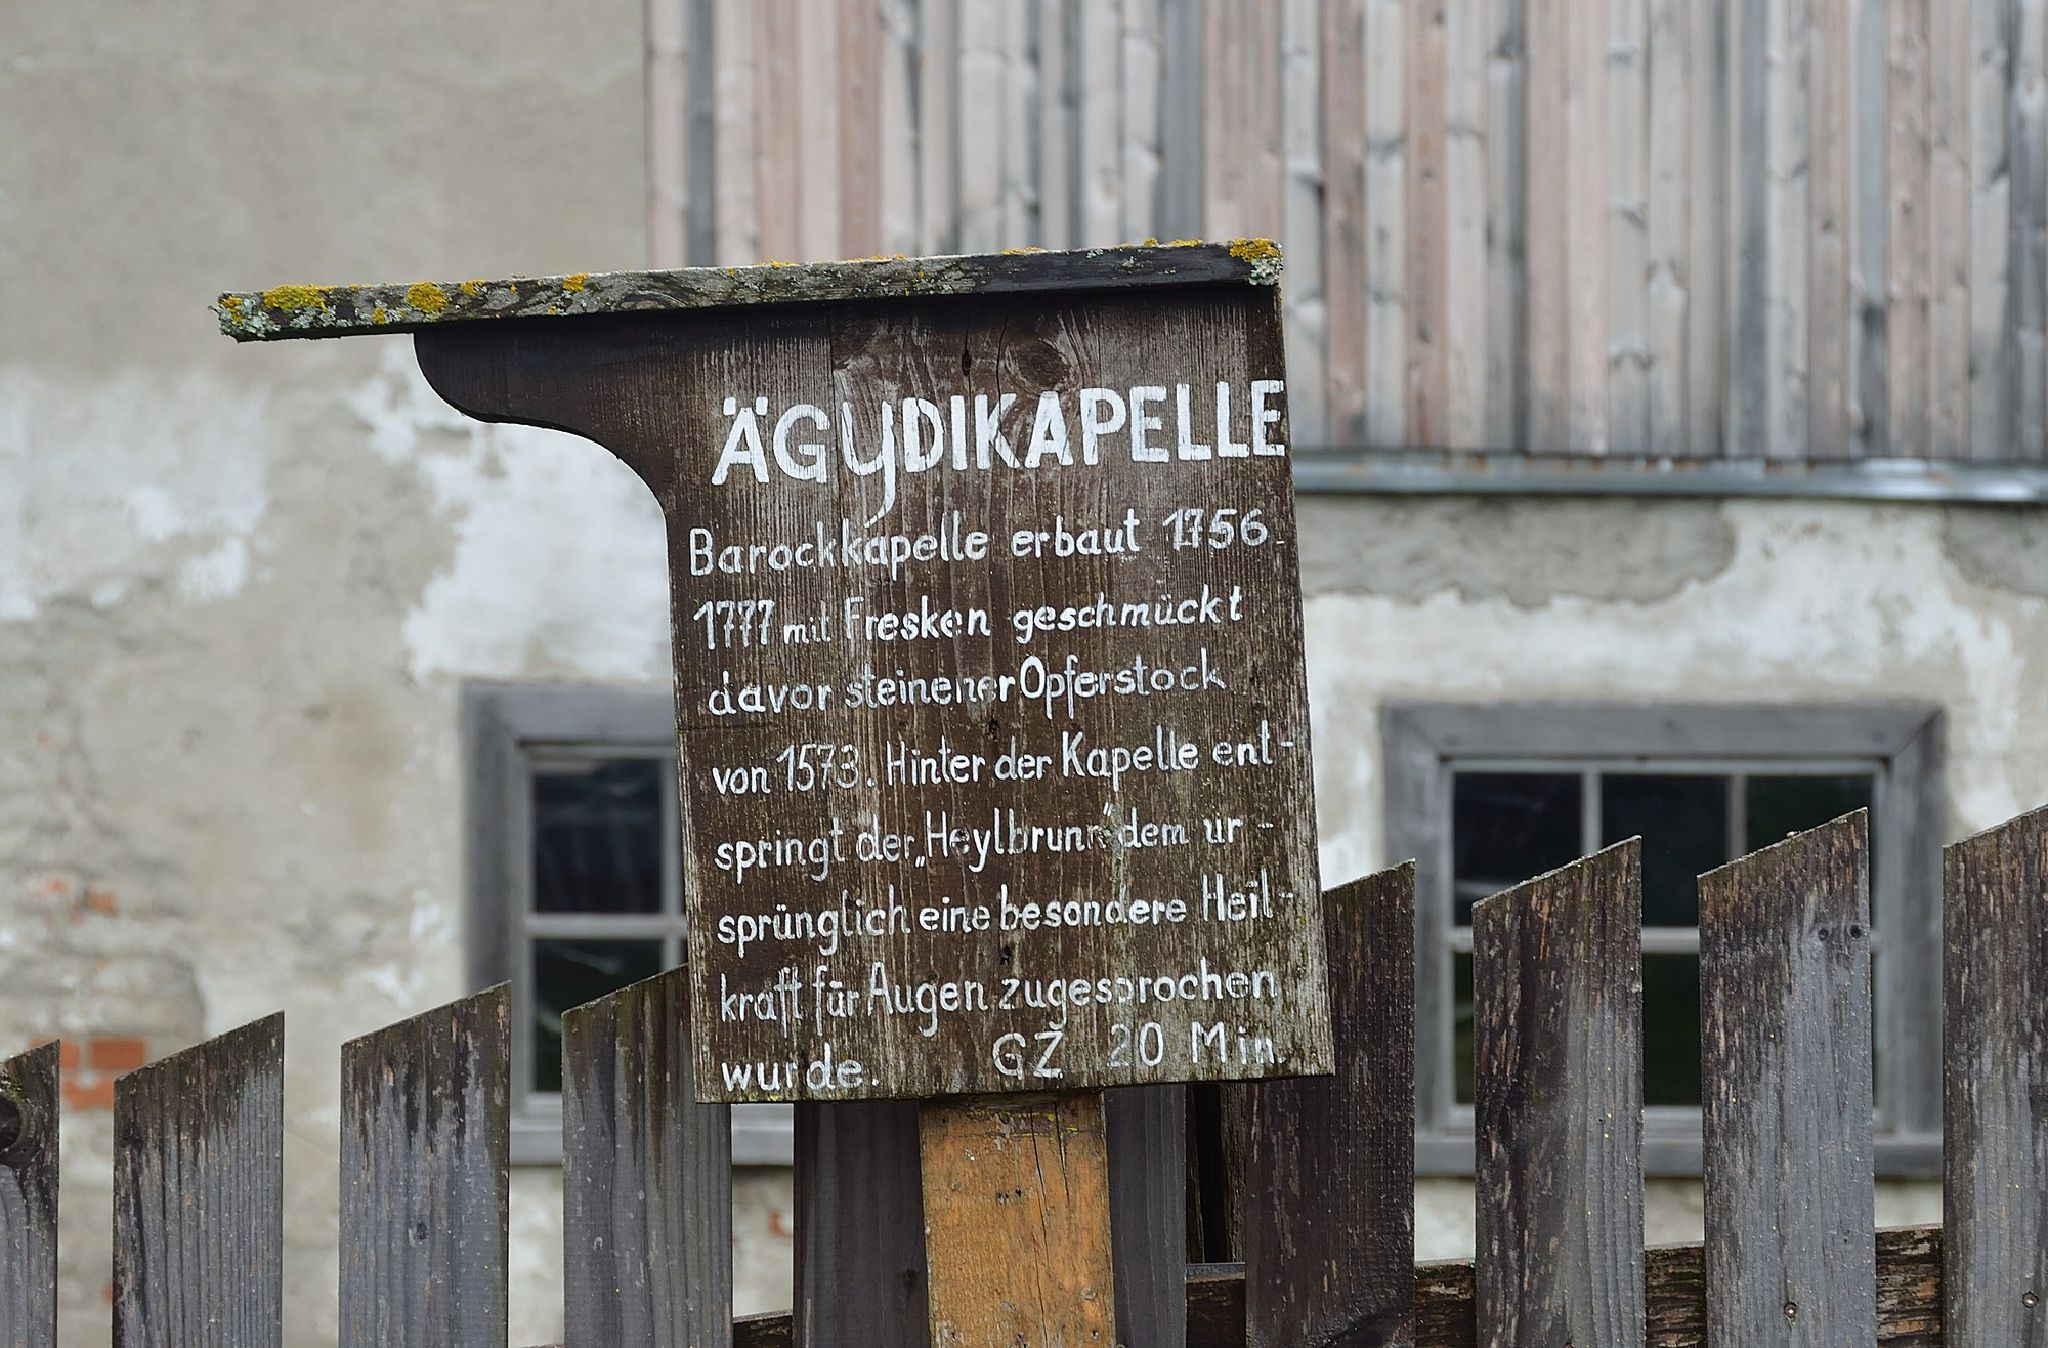 ÄGYDIKAPELLE
Barockkapelle erbaut 1756.
1777 mit Fresken geschmückt
davor steinener Opferstock
von 1573. Hinter der Kapelle ent-
springt der „Heylbrunn" dem ur-
sprünglich eine besondere Heil-
kraft für Augen zugesprochen
wurde. GZ 20 Min.